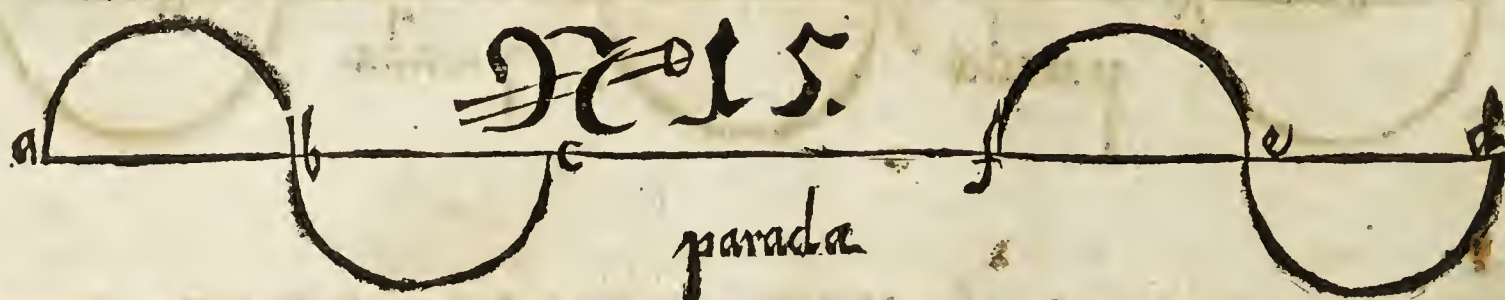 Nº 15.
a b c f e d
parada